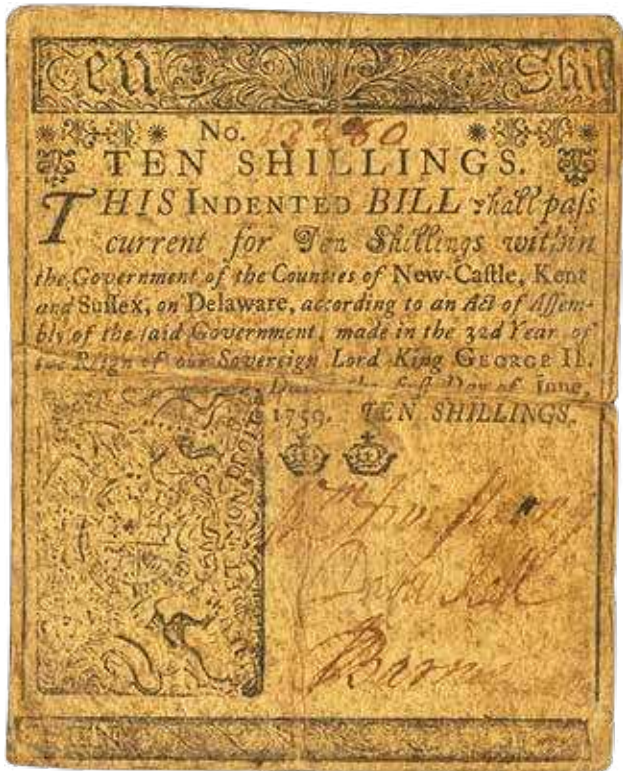 Ten Shil
No. 13380
TEN SHILLINGS.
THIS INDENTED BILL shall paſs
current for Ten Shillings within
the Government of the Counties of New-Caſtle, Kent
and Suſſex, on Delaware, according to an Act of Aſſem-
bly of the ſaid Government, made in the 32d Year of
the Reign of our Sovereign Lord King GEORGE II.
the firſt Day of June,
1759. TEN SHILLINGS.
ET MON DROIT